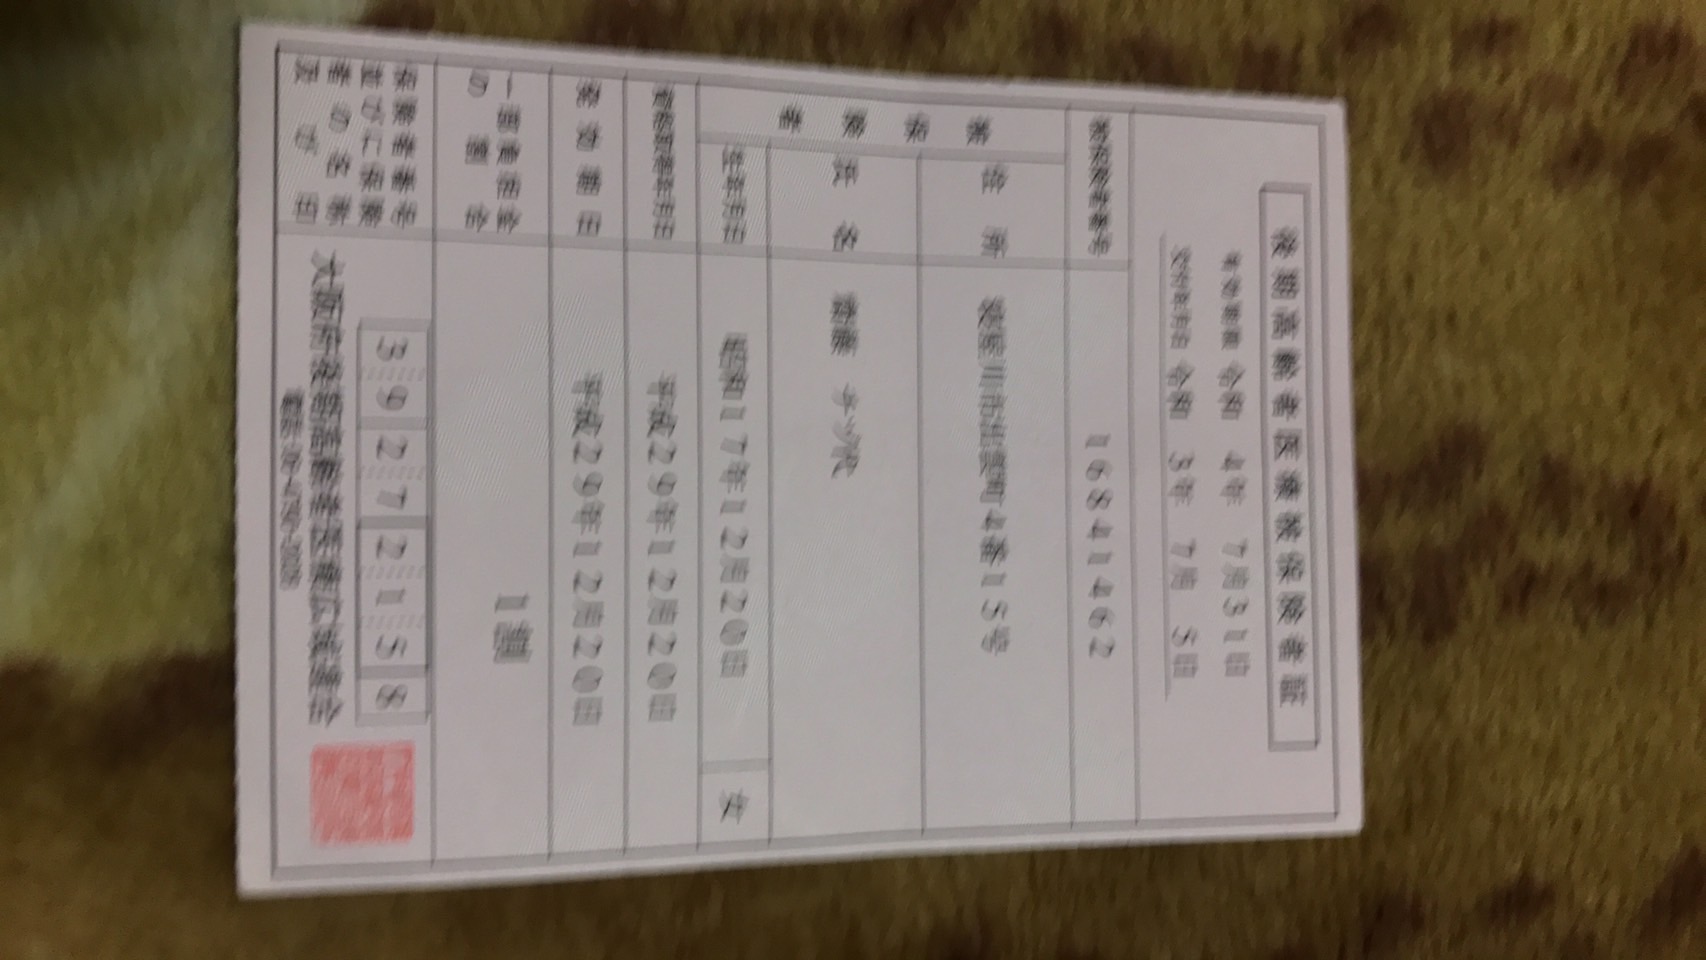 後期高齢者医療被保険者証
有効期限 令和 4年 7月31日
交付年月日 令和 3年 7月 5日
被保険者番号 16841462
被保険者
住所 4番15号
氏名
生年月日 昭和17年12月20日 女
資格取得年月日 平成29年12月20日
発効期日 平成29年12月20日
一部負担金の割合 1割
保険者番号並びに保険者の名称及び印
39272158
大阪府後期高齢者医療広域連合